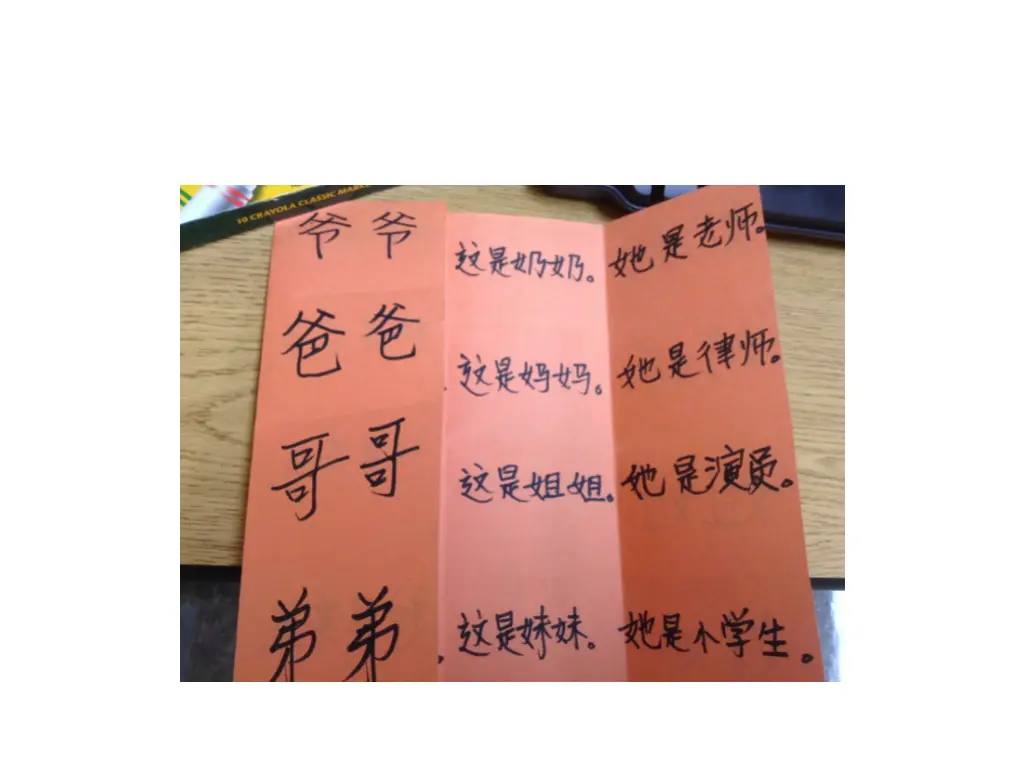 10 CRAYOLA CLASSIC MARK
爷爷 这是奶奶。 她是老师。
爸爸 这是妈妈。 她是律师。
哥哥 这是姐姐。 她是演员。
弟弟。 这是妹妹。 她是小学生。